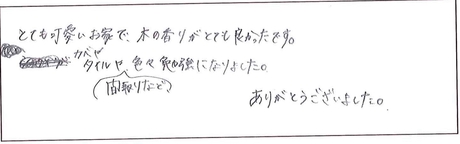 とても可愛いお家で、木の香りがとても良かったです。
カベや
タイルや、色々勉強になりました。
(間取りなど)
ありがとうございました。